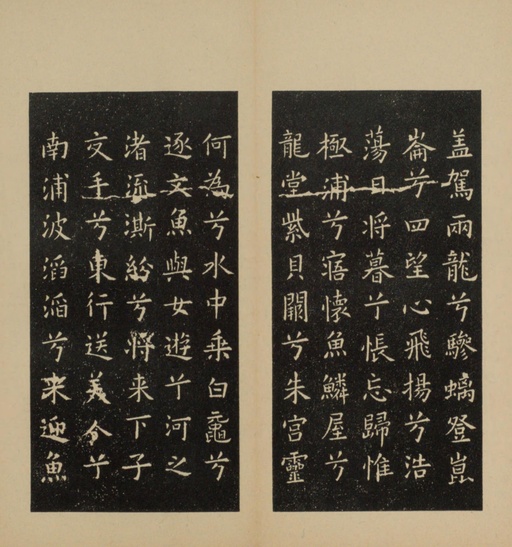 盖駕兩龍兮驂螭登崑
崙兮四望心飛揚兮浩
蕩日將暮兮悵忘歸惟
極浦兮寤懷魚鱗屋兮
龍堂紫貝闕兮朱宮靈
何為兮水中乘白黿兮
逐文魚與女遊兮河之
渚流澌紛兮將来下子
交手兮東行送美人兮
南浦波滔滔兮来迎魚